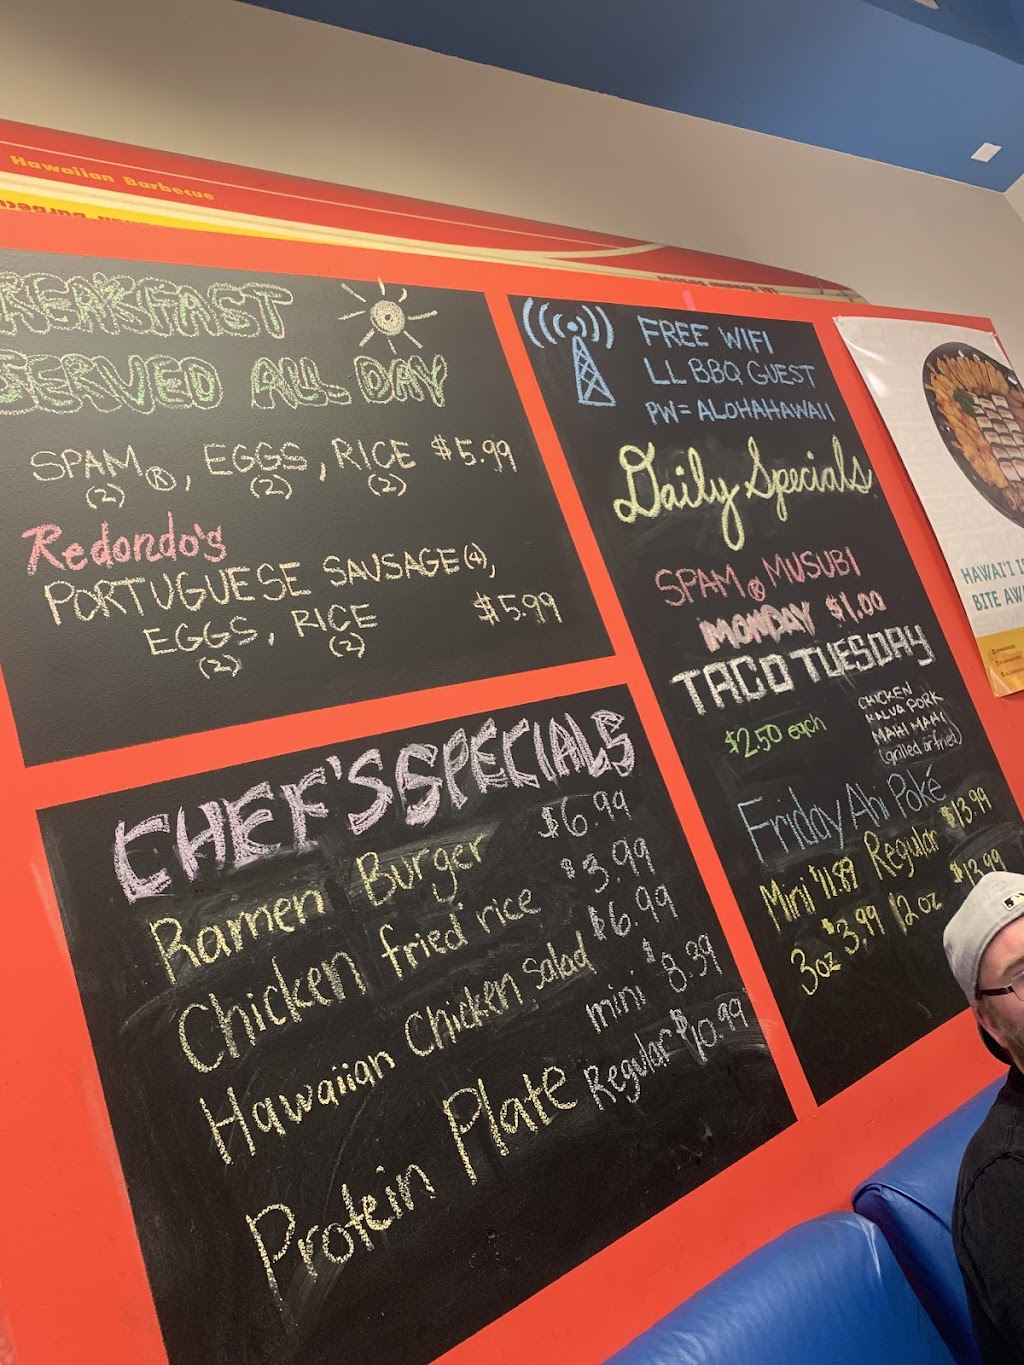 Hawaiian Barbecue
BREAKFAST
SERVED ALL DAY
SPAM®, EGGS, RICE $5.99
(2) (2) (2)
Redondo's
PORTUGUESE SAUSAGE (4),
EGGS, RICE $5.99
(2) (2)
CHEF'S SPECIALS
Ramen Burger $6.99
Chicken fried rice $3.99
Hawaiian Chicken Salad $6.99
Protein Plate mini $8.39
Regular $10.99
FREE WIFI
LL BBQ GUEST
PW= ALOHAHAWAII
Daily Specials
SPAM® MUSUBI
MONDAY $1.00
TACO TUESDAY
$2.50 each
CHICKEN
KALUA PORK
MAHI MAHI
(grilled or fried)
Friday Ahi Poké
Mini $11.89 Regular $13.99
3oz $3.99 12oz $13.99
HAWAI'I I
BITE AW